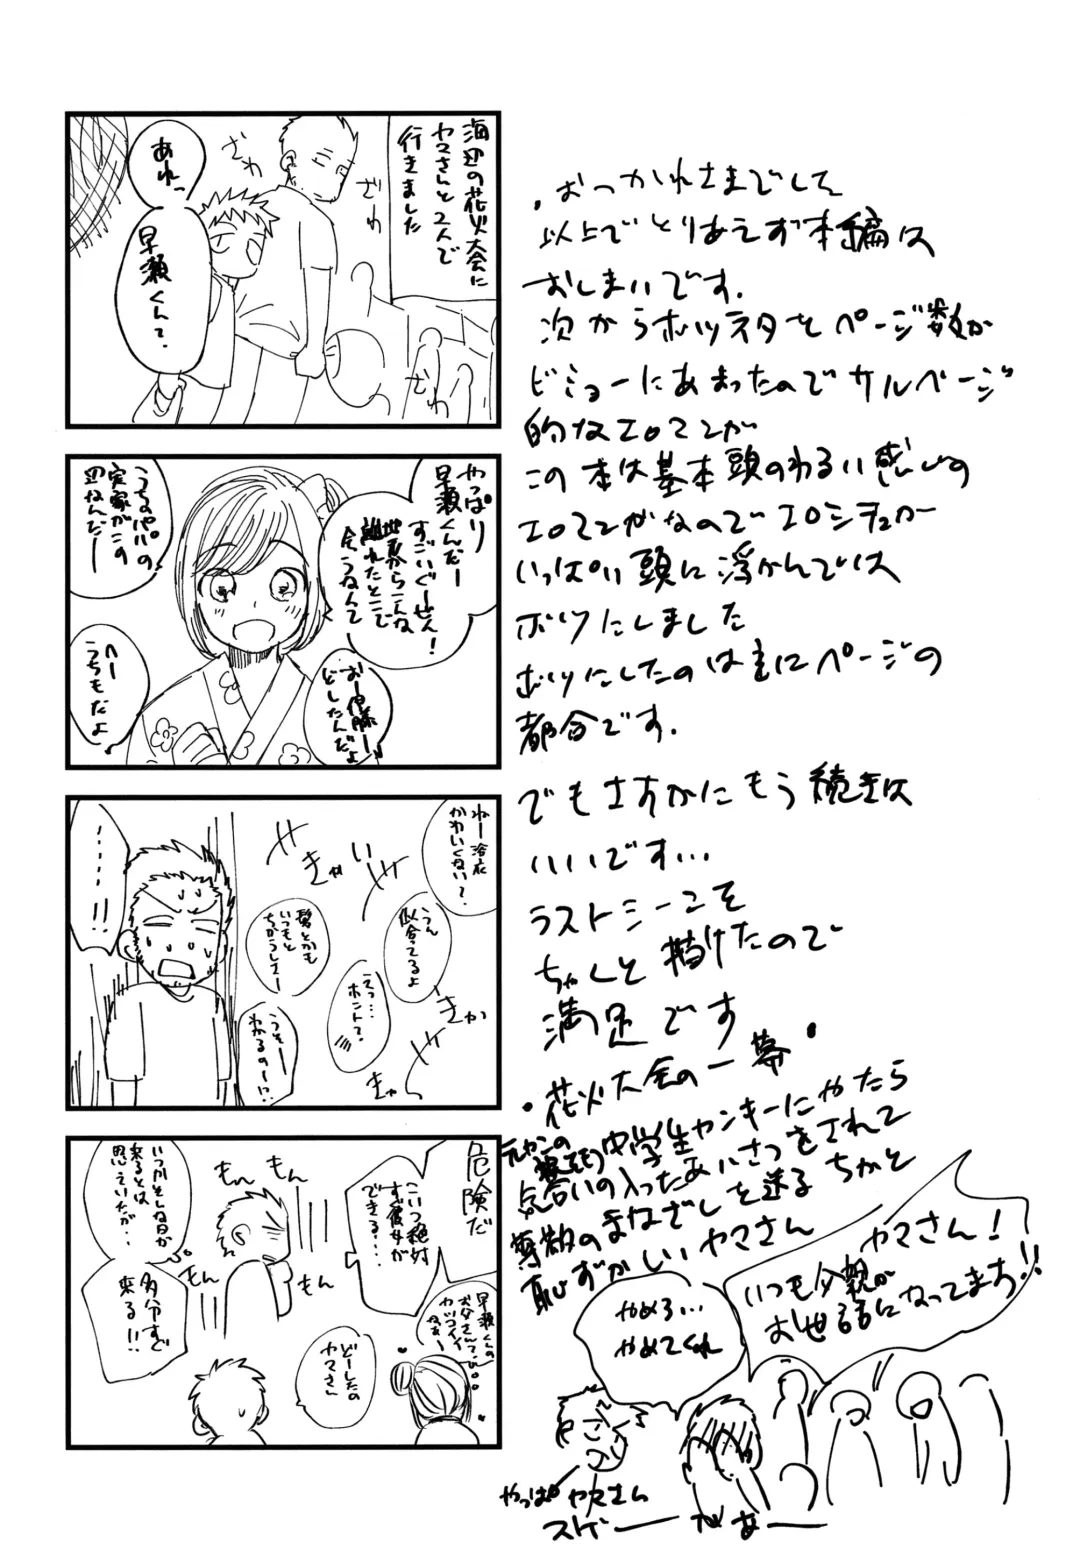 海辺の花火大会に
ヤマさんと2人で
行きました
ざわ
ざわ
ざわ
あれっ
早瀬くんて.
やっぱり
早瀬くんだー
すごいぐーせん!
地元からこんな
離れたとこで
会うなんてー
うちのパパの
実家がこの
辺なんだー
おー伊藤ー
どしたんだよ
へー
うちもだよ
ねー浴衣
かわいくない?
うん
似合ってるよ
髪とかも
いつもと
ちがうしさー
えっ…
ホント?
うそー
わかるのー!?
きゃ
い
きゃ
きゃ
………!!
危険だ
こいつ絶対
すぐ彼女が
できる…
いつかそんな日が
来るとは
思っていたが…
多分すぐ
来る!!
もん
もん
もん
もん
早瀬くんの
お父さんて
カッコイイ
どーしたの
ヤマさん
・おつかれさまでした
以上でとりあえず本編は
おしまいです.
次からボツネタをページ数が
ビミョーにあまったのでサルベージ
的なエロマンガ
この本は基本頭のわるい感じの
エロマンガなのでエロシチュが
いっぱい頭に浮かんでは
ボツにしました
ボツにしたのは主にページの
都合です.
でもさすがにもう続きは
いいです…
ラストシーンこそ
ちゃんと描けたので
満足です
・花火大会の一幕・
元ヤンの
息子の中学生ヤンキーにやたら
気合いの入ったあいさつをされて
尊敬のまなざしを送るちかと
恥ずかしいヤマさん
ヤマさん!
いつも父親が
お世話になってまぢ!!
やめろ…
やめてくれ
やっぱヤマさん
スゲーがあー